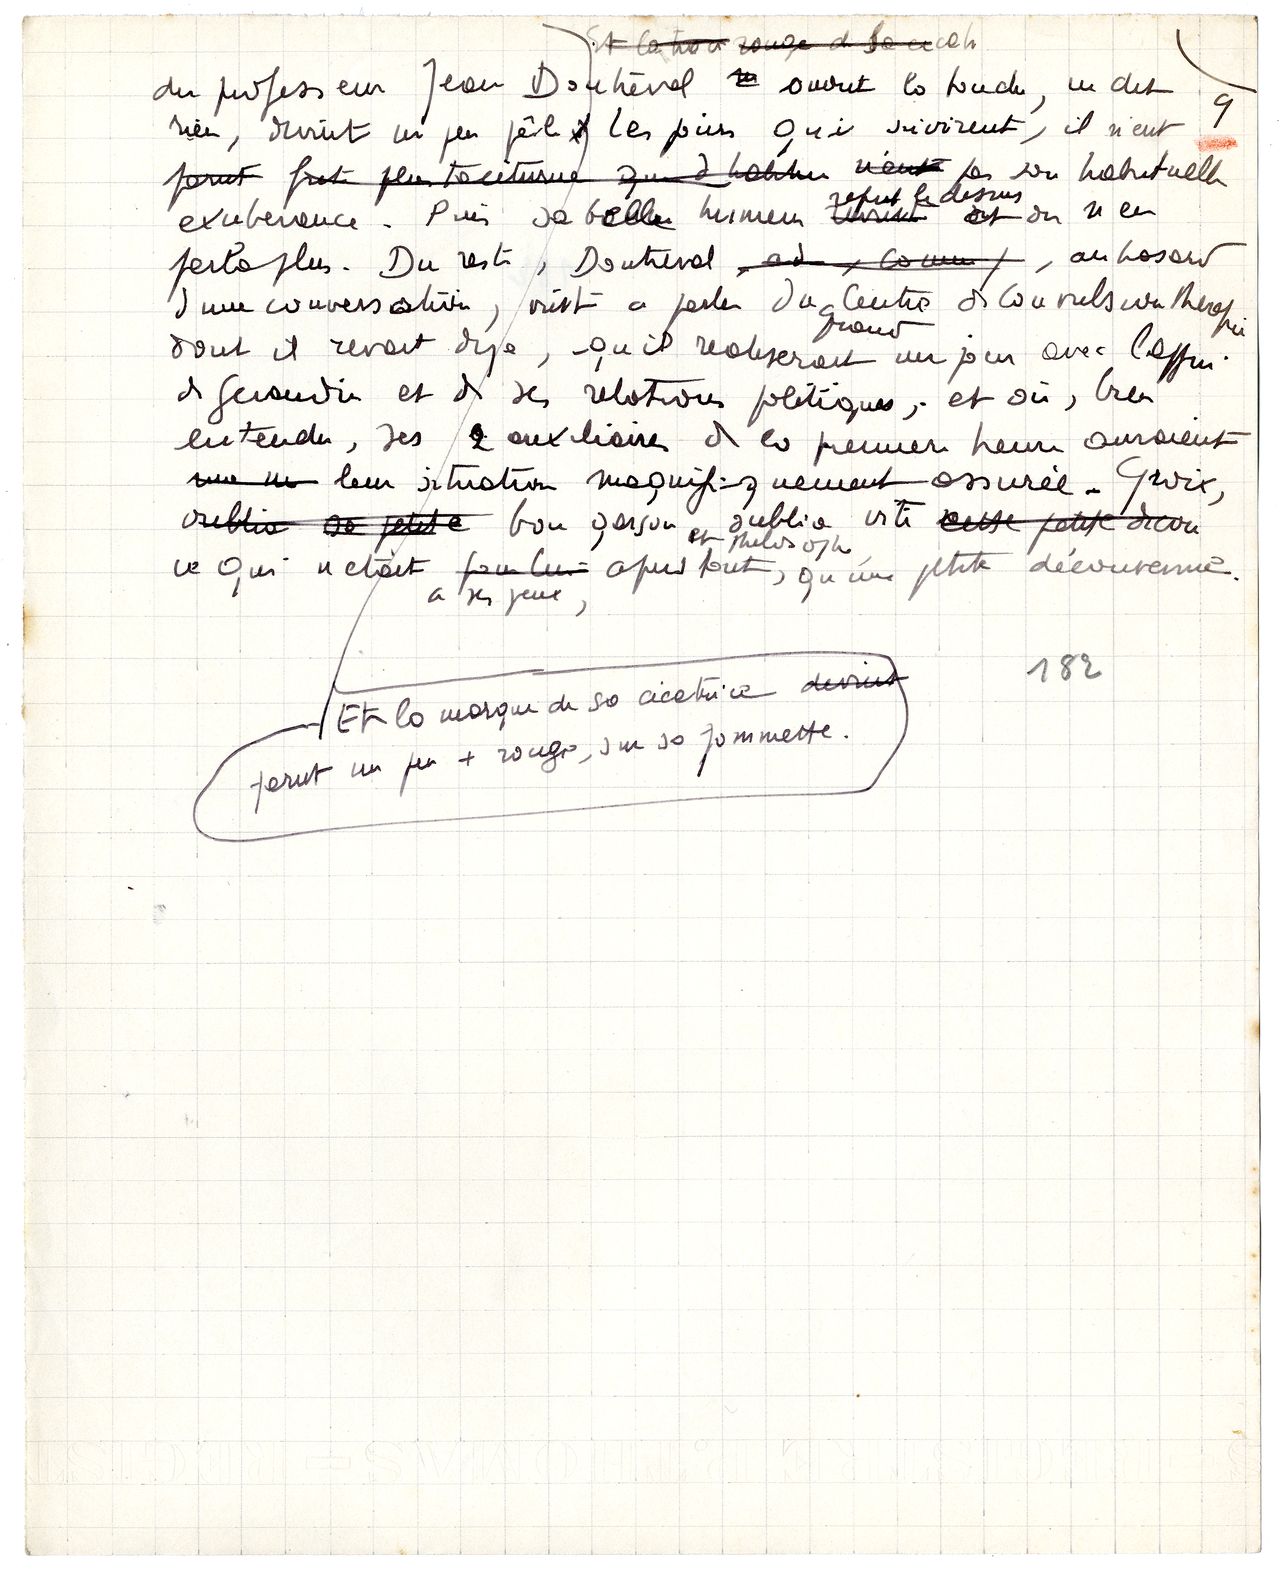 Et la trace rouge de sa cicat
du professeur Jean Doutreval ouvrit la bouche, ne dit
9
rien, devint un peu pâle. Les jours qui suivirent, il n'eut
parut fut plus taciturne que d'habitu n'eut pas son habituelle
exubérance. Puis sa belle humeur reprit le dessus et on n'en
parla plus. Du reste, Doutreval, au hasard
d'une conversation, vint à parler du grand Centre de Convulsionthérapie
dont il rêvait déjà, qu'il réaliserait un jour avec l'appui
de Géraudin et de ses relations politiques, et où, bien
entendu, ses 2 auxiliaires de la première heure auraient
leur situation magnifiquement assurée. Groix,
oublia sa petite bon garçon et philosophe, oublia vite cette petite décon
ce qui n'était pour lui à ses yeux, après tout, qu'une petite déconvenue.
182
Et la marque de sa cicatrice devint
parut un peu + rouge, sur sa pommette.